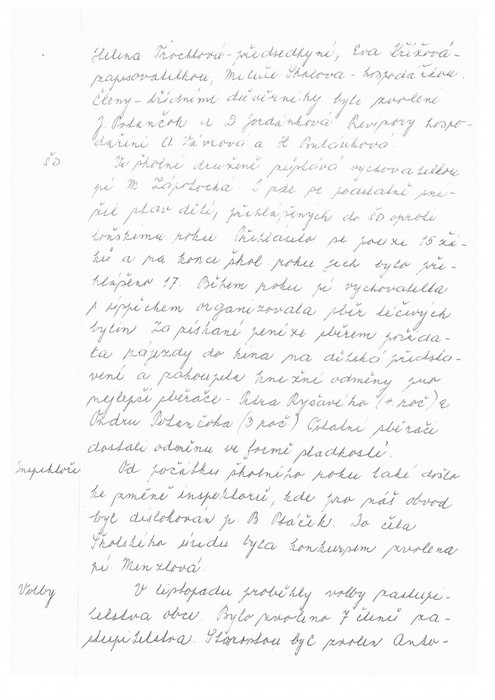 Helena Trochtová - předsedkyní, Eva Křížová -
zapisovatelkou, Miluše Skalova - hospodářkou.
Členy - třídními důvěrníky byli zvoleni
J. Polančok a D Jordánková Revizory hospo-
daření A Vávrová a H
ŠD Ve školní družině zůstává vychovatelkou
pí M. Zápotocká. I zde se podstatně sní-
žil stav dětí, přihlášených do ŠD oproti
loňskému roku Přihlásilo se pouze 15 žá-
ků a na konci škol roku jich bylo při-
hlášeno 17. Během roku pí vychovatelka
s úspěchem organizovala sběr léčivých
bylin Za získané peníze sběrem pořáda-
la zájezdy do kina na dětská předsta-
vení a zakoupila knižní odměny pro
nejlepší sběrače - Petra Ryšavého (4 roč) a
Ondru Polančoka (3 roč) Ostatní sběrači
dostali odměnu ve formě sladkostí.
Inspektoři Od počátku školního roku také došlo
ke změně inspektorů, kde pro náš obvod
byl dislokován p. B Ptáček. Do čela
Školského úřadu byla konkurzem zvolena
pí Menzlová.
Volby V listopadu proběhly volby zastupi-
telstva obce. Bylo zvoleno 7 členů za-
stupitelstva. Starostou byl zvolen Anto-